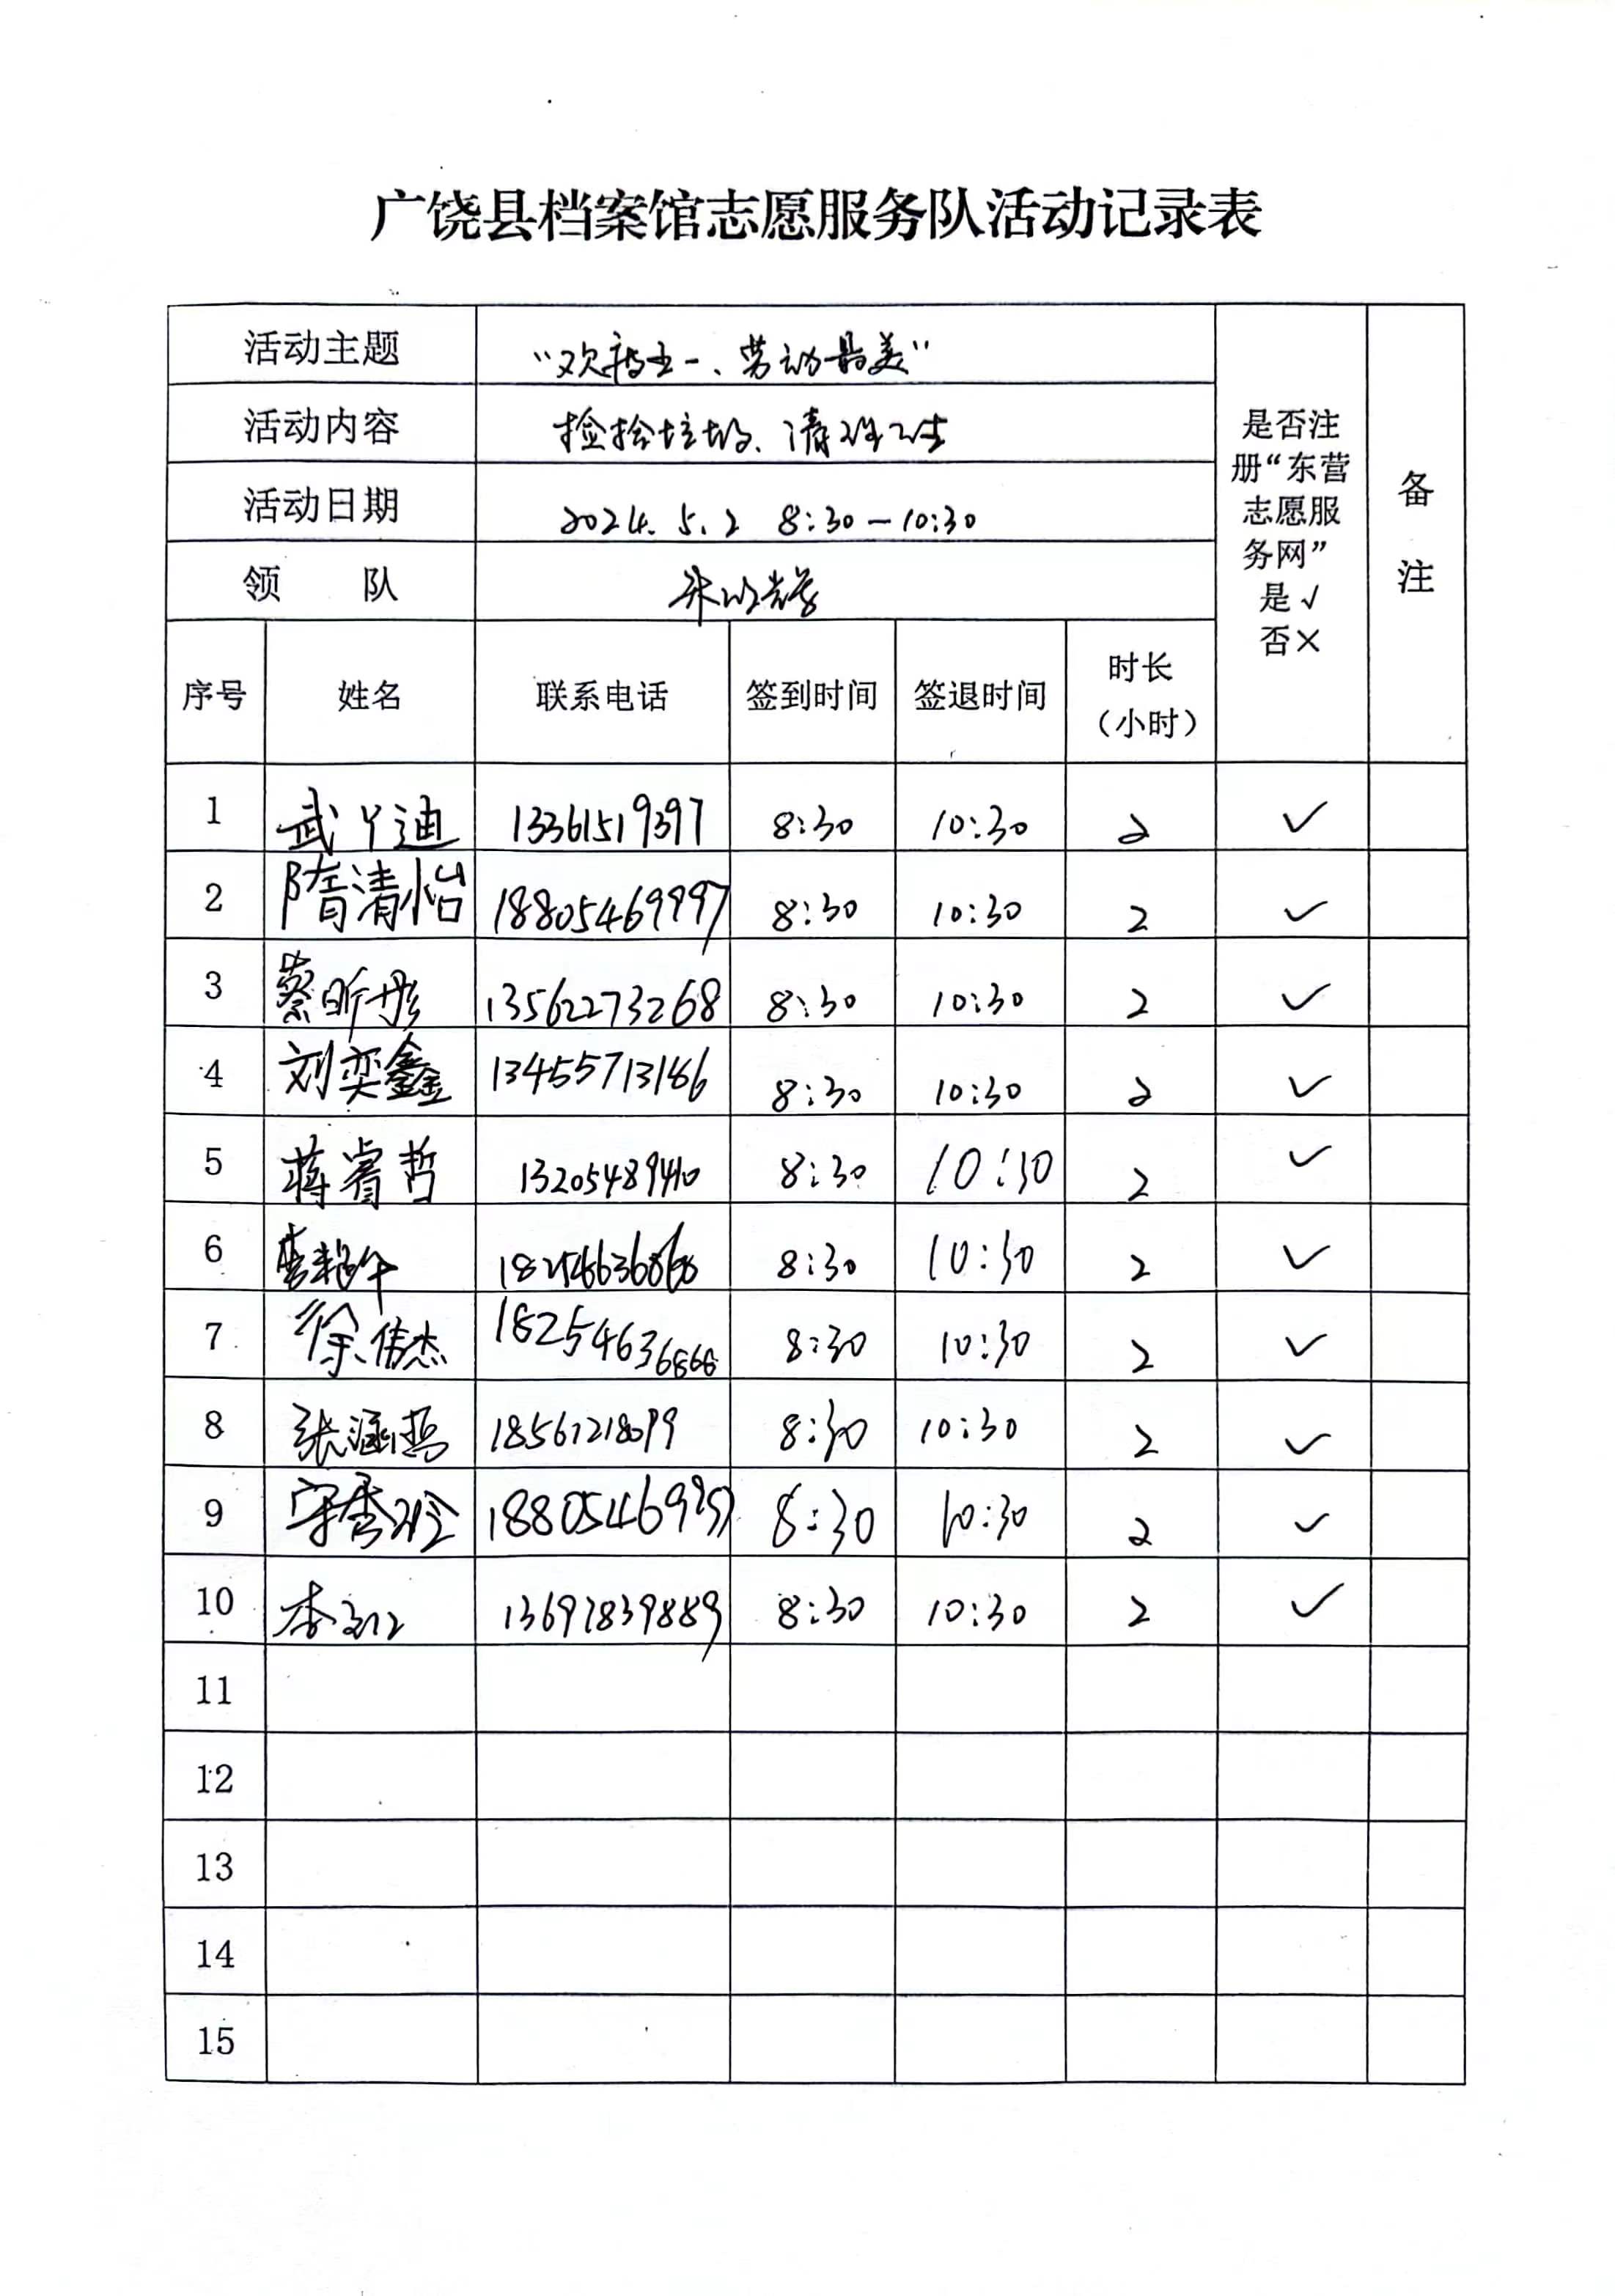 广饶县档案馆志愿服务队活动记录表
活动主题 “欢度五一、劳动最美”
活动内容 捡拾垃圾、清理卫生
活动日期 2024.5.2 8:30-10:30
领 队
是否注
册“东营
志愿服
务网”
是√
否×
备
注
序号 姓名 联系电话 签到时间 签退时间 时长
（小时）
1 武丫迪 13361519397 8:30 10:30 2 ✓
2 隋清怡 18805469997 8:30 10:30 2 ✓
3 蔡昕彤 13562273268 8:30 10:30 2 ✓
4 刘奕鑫 13455713186 8:30 10:30 2 ✓
5 蒋睿哲 13205489410 8:30 10:30 2 ✓
6 18254636868 8:30 10:30 2 ✓
7 徐伟杰 18254636868 8:30 10:30 2 ✓
8 张涵哲 18561218099 8:30 10:30 2 ✓
9 8:30 10:30 2 ✓
10 13697839889 8:30 10:30 2 ✓
11
12
13
14
15